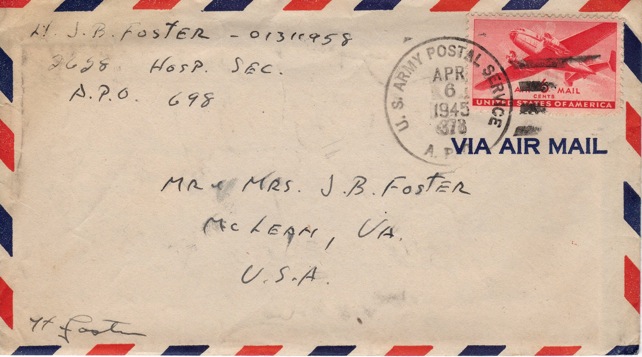 Lt. J.B. FOSTER - 01311958
2628 HOSP. SEC.
A.P.O. 698
U.S. ARMY POSTAL SERVICE
APR
6
1945
A.P.
AIR MAIL
CENTS
UNITED STATES OF AMERICA
VIA AIR MAIL
MR + MRS. J.B. FOSTER
McLEAN, VA.
U.S.A.
Foster